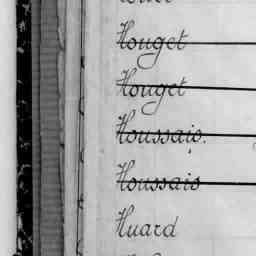 Houget
Houget
Houssais.
Houssais
Huard